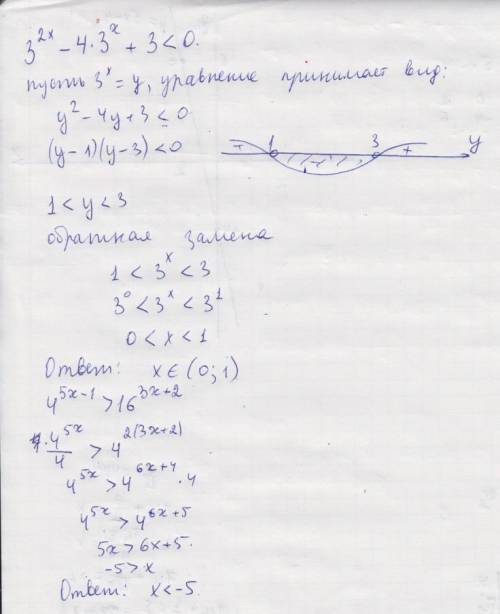 3^{2x} - 4·3^x + 3 < 0.
пусть 3^x = y, уравнение принимает вид:
y² - 4y + 3 ≤ 0
(y - 1)(y - 3) < 0
+ 1 - 3 + y
1 < y < 3
обратная замена
1 < 3^x < 3
3^0 < 3^x < 3^1
0 < x < 1
Ответ: x ∈ (0; 1)
4^{5x-1} > 16^{3x+2}
4^{5x}/4 > 4^{2(3x+2)}
4^{5x} > 4^{6x+4} · 4
4^{5x} > 4^{6x+5}
5x > 6x + 5.
-5 > x
Ответ: x < -5.